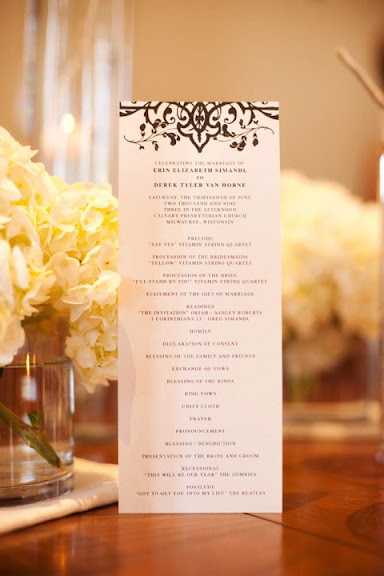 CELEBRATING THE MARRIAGE OF
ERIN ELIZABETH SIMANDL
TO
DEREK TYLER VAN HORNE
SATURDAY, THE THIRTEENTH OF JUNE,
TWO THOUSAND AND NINE
THREE IN THE AFTERNOON
CALVARY PRESBYTERIAN CHURCH
MILWAUKEE, WISCONSIN
PRELUDE
"SAY YES" VITAMIN STRING QUARTET
PROCESSION OF THE BRIDESMAIDS
"YELLOW" VITAMIN STRING QUARTET
PROCESSION OF THE BRIDE
"I'LL STAND BY YOU" VITAMIN STRING QUARTET
STATEMENT OF THE GIFT OF MARRIAGE
READINGS
"THE INVITATION" ORIAH - ASHLEY ROBERTS
1 CORINTHIANS 13 - GREG SIMANDL
HOMILY
DECLARATION OF CONSENT
BLESSING OF THE FAMILY AND FRIENDS
EXCHANGE OF VOWS
BLESSING OF THE RINGS
RING VOWS
UNITY CLOTH
PRAYER
PRONOUNCEMENT
BLESSING / BENEDICTION
PRESENTATION OF THE BRIDE AND GROOM
RECESSIONAL
"THIS WILL BE OUR YEAR" THE ZOMBIES
POSTLUDE
"GOT TO GET YOU INTO MY LIFE" THE BEATLES